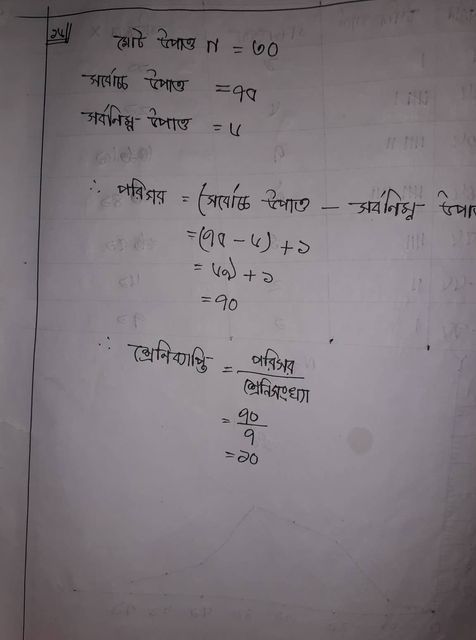 ১৬॥ মোট উপাত্ত n = ৩০
সর্বোচ্চ উপাত্ত = ৭৫
সর্বনিম্ন উপাত্ত = ৬
∴ পরিসর = (সর্বোচ্চ উপাত্ত - সর্বনিম্ন উপাত
= (৭৫ - ৬) + ১
= ৬৯) + ১
= ৭০
∴ শ্রেনিব্যাপ্তি = পরিসর
শ্রেনিসংখ্যা
= ৭০
৭
= ১০